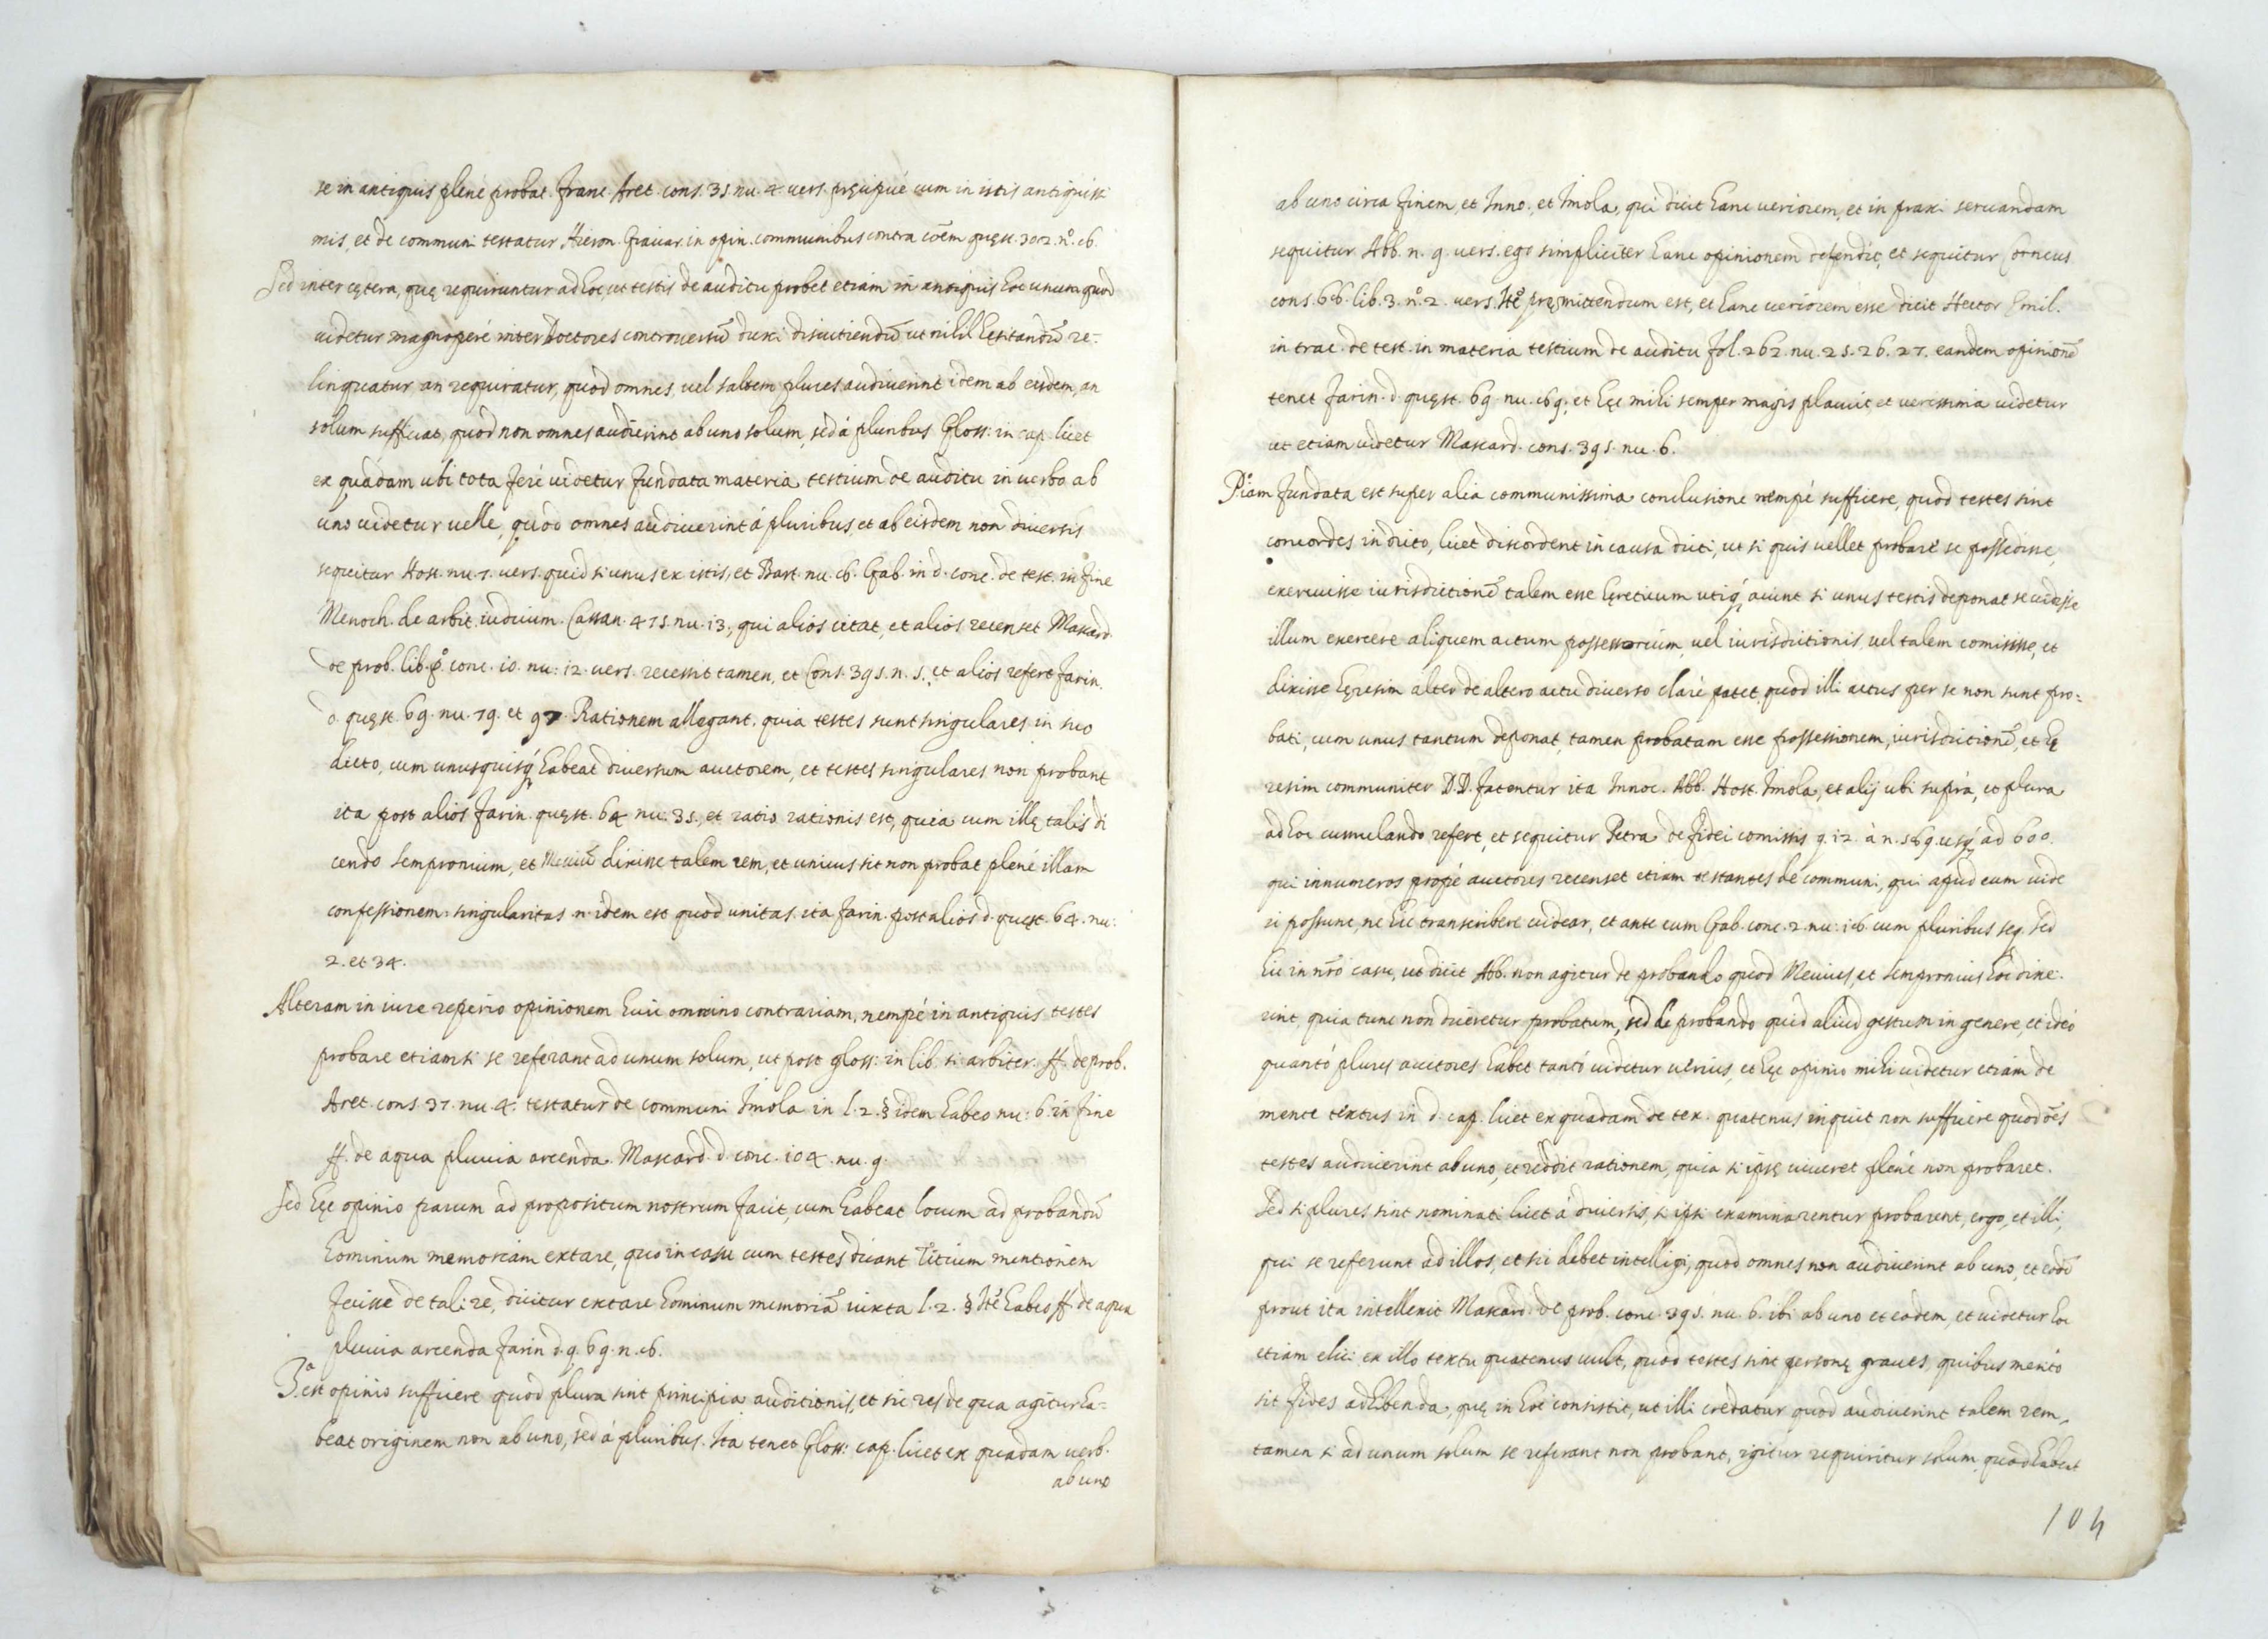 se in antiquis plenè probat Franc. Aret. cons. 35. nu. 4. vers. pręcipuè cum in istis antiquissi
mis, et de communi testatur Hieron. Gravar. in opin. communibus contra cõem quęst. 302. nº. 16.
Sed inter cętera, quę requiruntur ad hoc, ut testis de auditu probet etiam in antiquis hoc unum quod
uidetur magnoperè inter Doctores controuersũ duxi discutiendũ ut nihil hęsitandũ re-
linquatur, an requiratur, quod omnes, uel saltem plures audiuerint idem ab eisdem, an
solum sufficiat, quòd non omnes audierint ab uno solum, sed à pluribus Gloss: in cap. licet
ex quadam ubi tota ferè uidetur fundata materia testium de auditu in uerbo ab
uno uidetur uelle, quòd omnes audiuerint à pluribus, et ab eisdem non diuersis
sequitur Host. nu. 7. uers. quid si unus ex istis, et Bart. nu. 16. Gab. in d. conc. de test. in fine
Menoch. de arbit. iudicium. Casu. 475. nu. 13., qui alios citat, et alios recenset Mascard.
de prob. lib. pº. conc. 10. nu: 12. uers. recessit tamen, et Cons. 395. n. 5., et alios refert Farin.
d. quęst. 69. nu. 79. et 97. Rationem allegant, quia testes sunt singulares in suo
dicto, cum unusquisq; habeat diuersum auctorem, et testes singulares non probant
ita post alios Farin. quęst. 64 nu: 35., et ratio rationis est, quia cum illę talis di
cendo Sempronium, et Meuiũ dixisse talem rem, et unicus sit non probat plenè illam
confessionem: singularitas n. idem est quod unitas. ita Farin. post alios d. quęst. 64. nu:
2. et 34.
Alteram in iure reperio opinionem huic omnino contrariam, nempè in antiquis testes
probare etiam si se referant ad unum solum, ut post gloss: in lib. si arbiter. ff. de prob.
Aret. cons. 37. nu. 4: testatur de communi Imola in l. 2. § idem Labeo nu: 6. in fine
ff. de aqua pluuia arcenda. Mascard. d. conc. 104. nu. 9.
Sed hęc opinio parum ad propositum nostrum facit, cum habeat locum ad probandũ
hominum memoriam extare, quo in casu cum testes dicant Titium mentionem
fecisse de tali re, dicitur extare hominum memoriã iuxta l. 2. § Itẽ Labeo ff. de aqua
pluuia arcenda Farin d. q. 69. n. 16.
3.ª est opinio sufficere quòd plura sint principia auditionis, et sic res de qua agitur ha-
beat originem non ab uno, sed à pluribus. Ita tenet Gloss: cap. licet ex quadam uerb.
ab uno
ab uno circa finem, et Inno., et Imola, qui dicit hanc ueriorem, et in praxi seruandam
sequitur Abb. n. 9. uers. ego simpliciter hanc opinionem defendit, et sequitur Corneus
cons. 66. lib. 3. nº. 2. uers. Itẽ pręmittendum est, et hanc ueriorem esse dicit Hector Emil.
in trac. de test. in materia testium de auditu fol. 262. nu. 25. 26. 27. eandem opinionẽ
tenet Farin. d. quęst. 69. nu. 169., et hęc mihi semper magis placuit, et uerissima uidetur
ut etiam uidetur Mascard. cons. 395. nu. 6.
Piam fundata est super alia communissima conclusione nempè sufficere, quòd testes sint
concordes in dicto, licet discordent in causa dicti, ut si quis uellet probare se possedisse,
exercuisse iurisdictionẽ talem esse hęreticum utiq; aiunt si unus testis deponat se uidisse
illum exercere aliquem actum possessorium, uel iurisdictionis, uel talem comisisse, et
dixisse hęresim alter de altero actu diuerso clarè patet, quod illi actus per se non sunt pro-
bati, cum unus tantum deponat, tamen probatam esse possessionem, iurisdictionẽ, et hę
resim communiter D.D. fatentur ita Innoc. Abb. Host. Imola, et alij ubi suprà, et plura
ad hoc cumulando refert, et sequitur Petra de fidei comissis q. 12. à n. 589. usq; ad 600.
qui innumeros propè auctores recenset etiam testantes de communi, qui apud eum uide
ri possunt, ne hic transcribere uidear, et ante eum Gab. conc. 2. nu: 16. cum pluribus seq. sed
hic in nrõ casu, ut dicit Abb. non agitur de probando quod Meuius, et Sempronius hoc dixe:
rint, quia tunc non diceretur probatum, sed de probando quid aliud gestum in genere, et ideò
quantò plures auctores habet tantò uidetur uerius, et hęc opinio mihi uidetur etiam de
mente textus in d. cap. licet ex quadam de tex. quatenus inquit non sufficere quod oẽs
testes audiuerint ab uno, et reddit rationem, quia si ipsę uiueret plenè non probaret.
Sed si plures sint nominati licet à diuersis, si ipsi examinarentur probarent, ergo, et illi,
qui se referunt ad illos, et sic debet intelligi, quod omnes non audiuerint ab uno, et eodẽ
prout ita intellexit Mascard. de prob. conc. 395. nu. 6. ibi ab uno et eodem, et uidetur hoc
etiam elici ex illo textu quatenus uult, quòd testes sint personę graues, quibus meritò
sit fides adhibenda, quę in hoc consistit, ut illi credatur quod audiuerint talem rem,
tamen si ad unum solum se referant non probant, igitur requiritur solum, quòd habeat
104